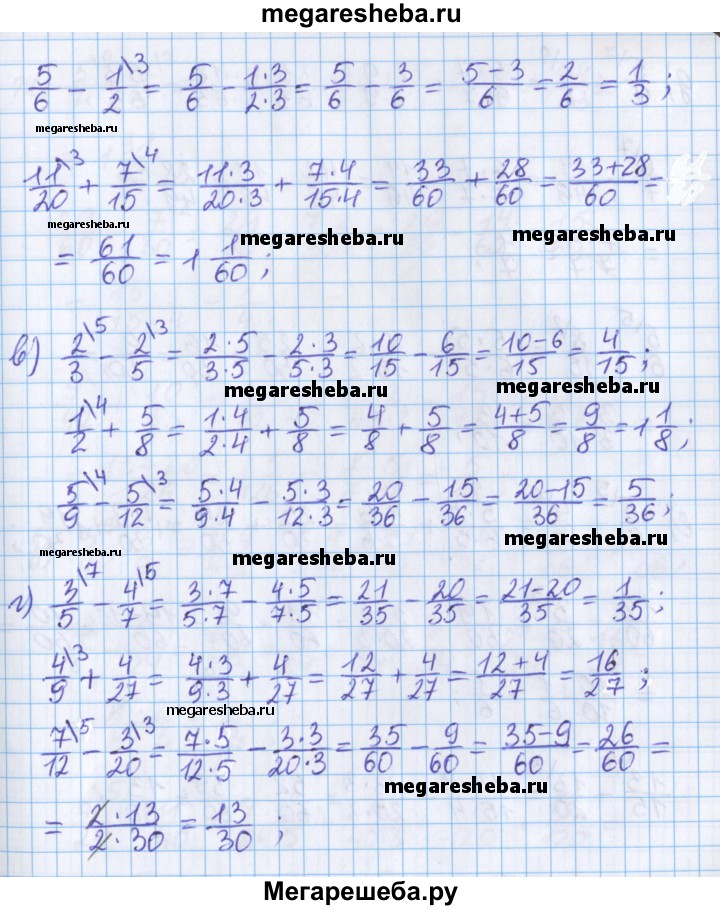 megaresheba.ru
5/6 - 1\3/2 = 5/6 - 1·3/2·3 = 5/6 - 3/6 = 5-3/6 = 2/6 = 1/3;
megaresheba.ru
11\3/20 + 7\4/15 = 11·3/20·3 + 7·4/15·4 = 33/60 + 28/60 = 33+28/60 =
megaresheba.ru
megaresheba.ru megaresheba.ru
= 61/60 = 1 1/60;
в) 2\5/3 - 2\3/5 = 2·5/3·5 - 2·3/5·3 = 10/15 - 6/15 = 10-6/15 = 4/15;
megaresheba.ru megaresheba.ru
1\4/2 + 5/8 = 1·4/2·4 + 5/8 = 4/8 + 5/8 = 4+5/8 = 9/8 = 1 1/8;
5\4/9 - 5\3/12 = 5·4/9·4 - 5·3/12·3 = 20/36 - 15/36 = 20-15/36 = 5/36;
megaresheba.ru megaresheba.ru megaresheba.ru
г) 3\7/5 - 4\5/7 = 3·7/5·7 - 4·5/7·5 = 21/35 - 20/35 = 21-20/35 = 1/35;
4\3/9 + 4/27 = 4·3/9·3 + 4/27 = 12/27 + 4/27 = 12+4/27 = 16/27;
megaresheba.ru
7\5/12 - 3\3/20 = 7·5/12·5 - 3·3/20·3 = 35/60 - 9/60 = 35-9/60 = 26/60 =
megaresheba.ru
= 2·13/2·30 = 13/30;
Мегарешеба.ру